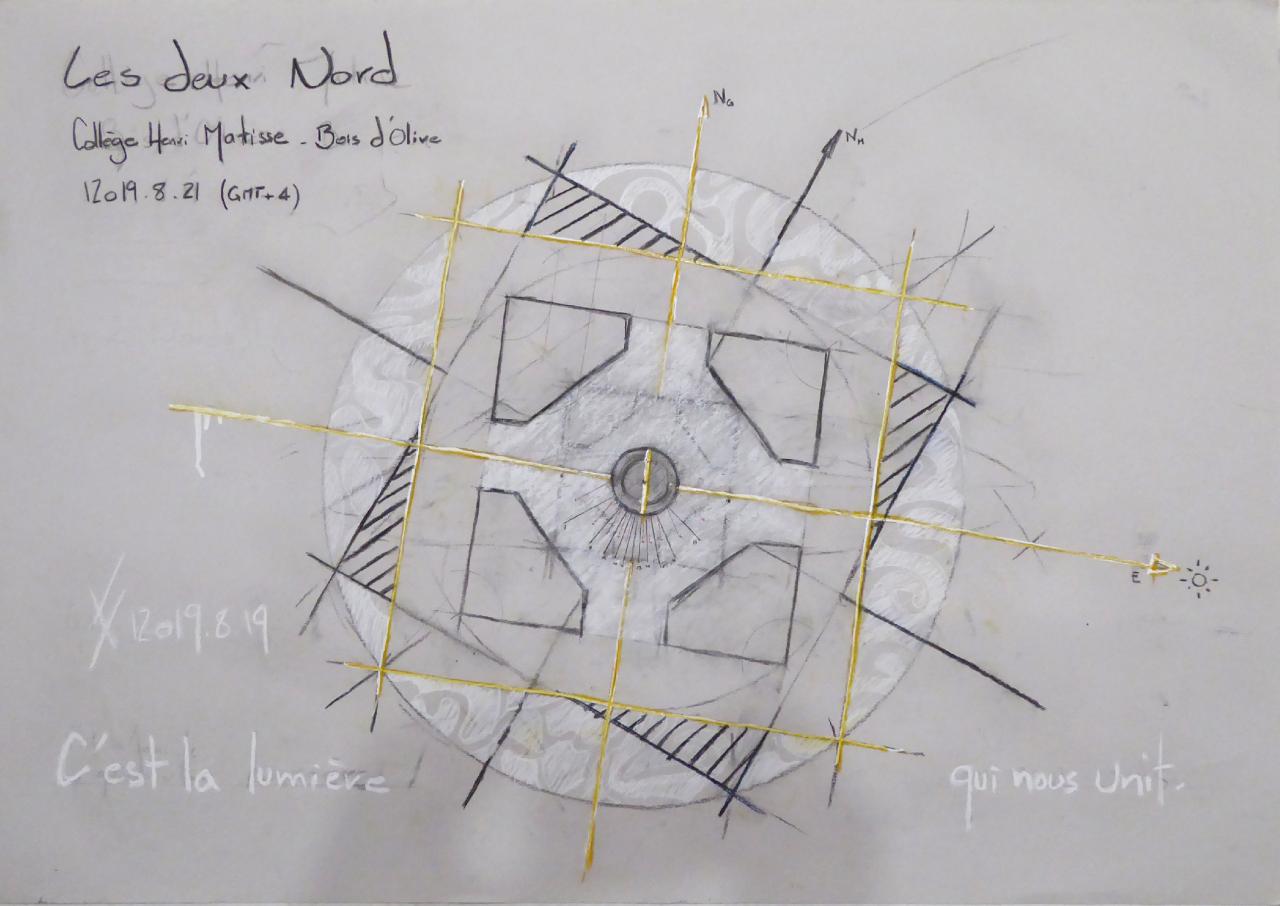 Les deux Nord
Collège Henri Matisse - Bois d'Olive
12019.8.21 (GMT+4)
NG
NM
E
12019.8.19
C'est la lumière
qui nous unit.